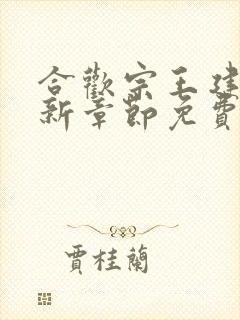 合歡宗王建
新章節免費
賈桂蘭